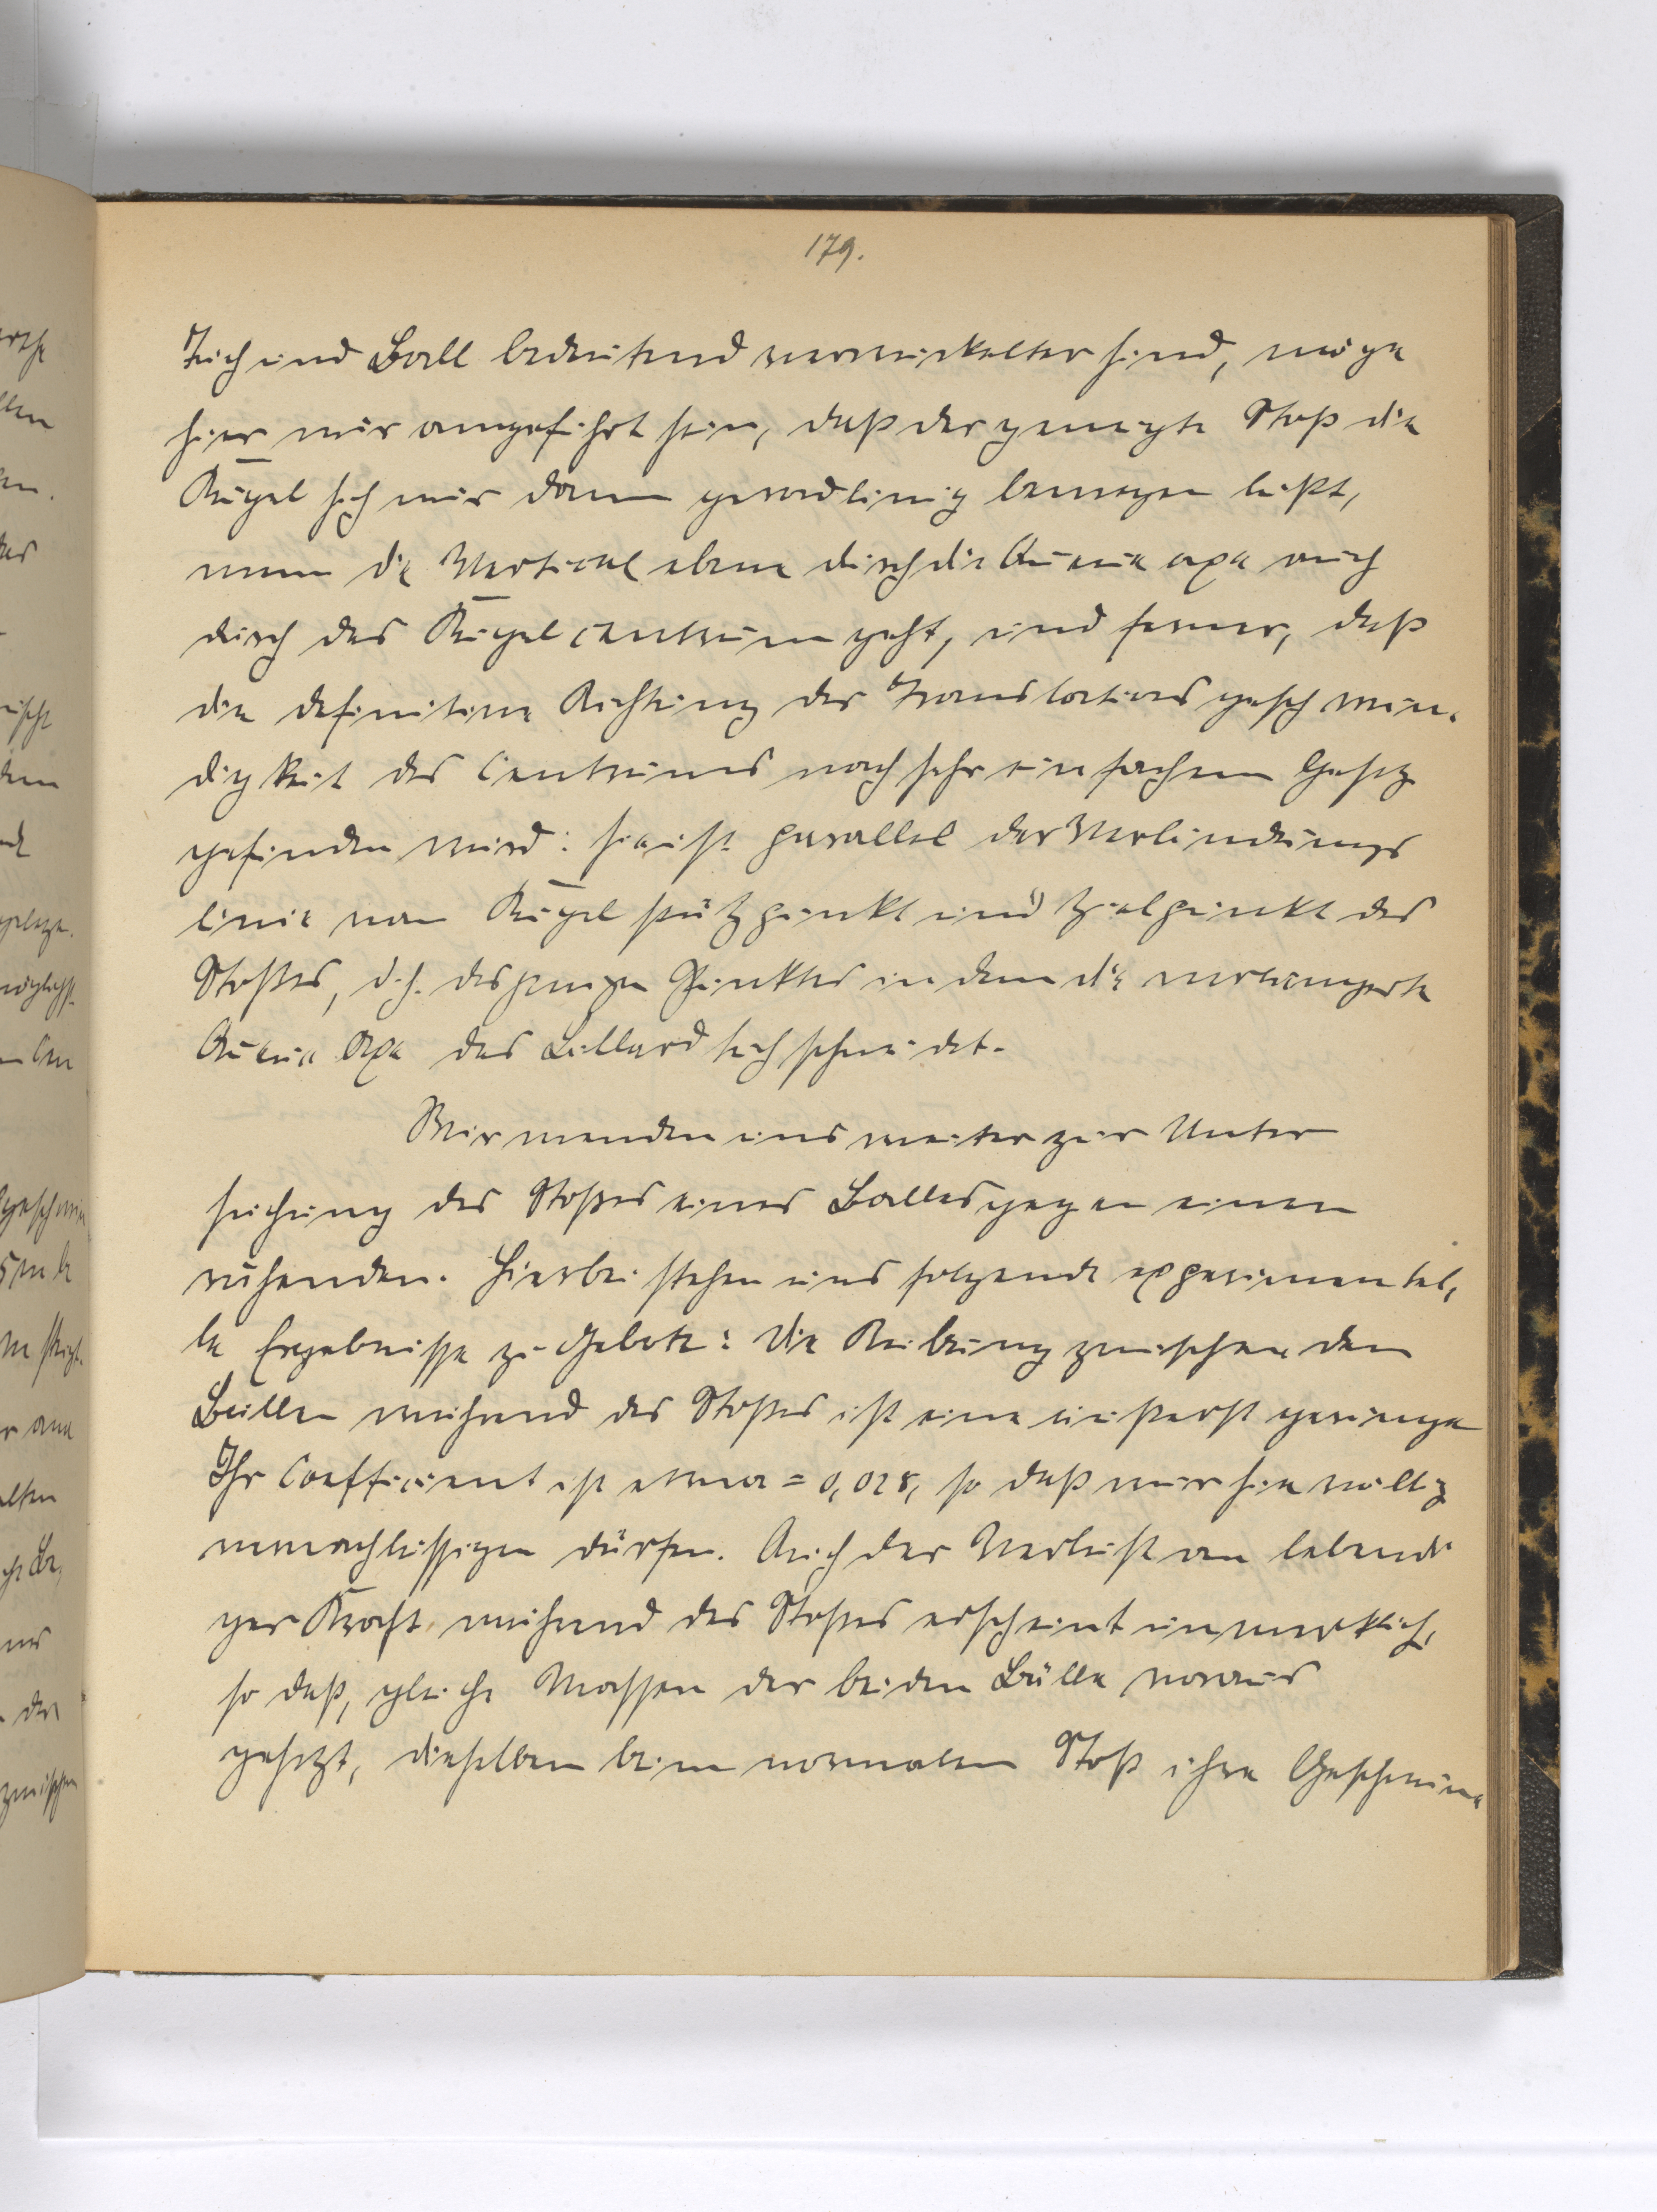 179.
Tuch und Ball bedeutend verwickelter sind, möge
hier nur angeführt sein, daß der geneigte Stoß die
Kugel sich nur dann geradlinig bewegen läßt,
wenn die Vertical ebene durch die Queue axe auch
durch das Kugelcentrum geht, und ferner, daß
die definitive Richtung der Translations geschwin-
digkeit des Centrums nach sehr einfachem Gesetz
gefunden wird: sie ist parallel der Verbindungs
linie von Kugel stützpunkt und Zielpunkt des
Stoßes, d.h. desjenigen Punktes in dem die verlängerte
Queue Axe das Billard tuch schneidet.
Wir wenden uns weiter zur Unter
suchung des Stoßes eines Balles gegen einen
ruhenden. Hierbei stehen uns folgende experimentel-
le Ergebnisse zu Gebote: Die Reibung zwischen den
Bällen während des Stoßes ist eine äußerst geringe
Ihr Coefficient ist etwa = 0,028, so daß wir sie völlig
vernachlässigen dürfen. Auch der Verlust an lebendi
ger Kraft während des Stoßes erscheint unmerklich,
so daß, gleiche Massen der beiden Bälle voraus
gesetzt, dieselben beim normalen Stoß ihre Geschwin-